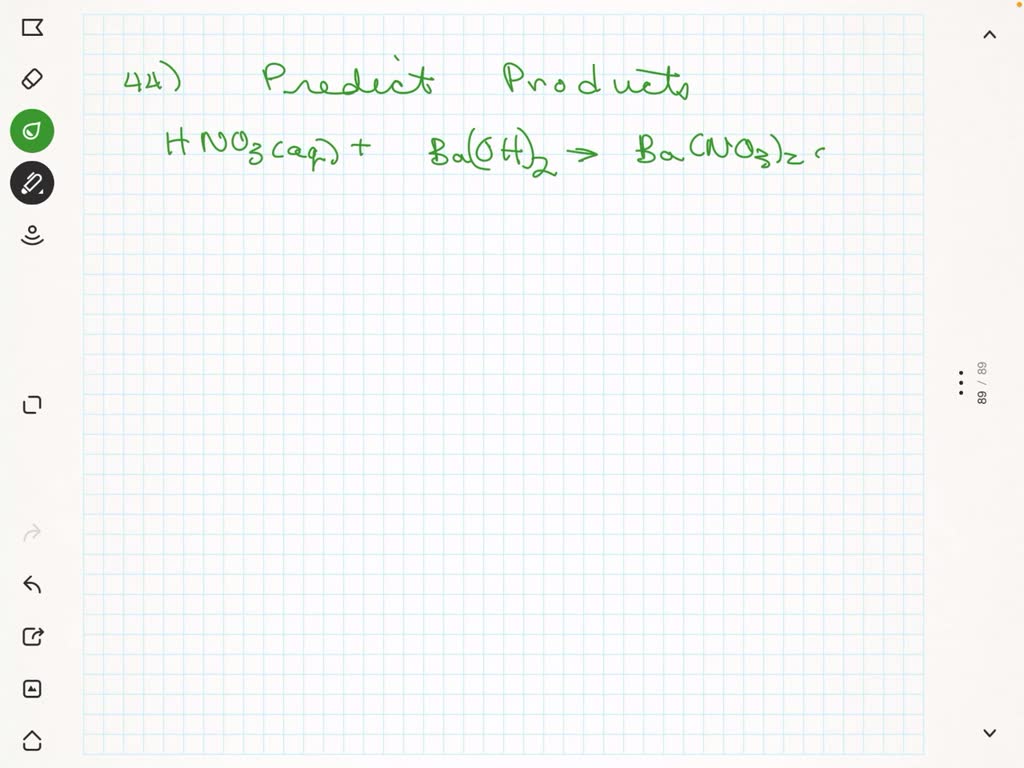 44) Predict Products
HNO3(aq) + Ba(OH)2 → Ba(NO3)2 (
89 / 89